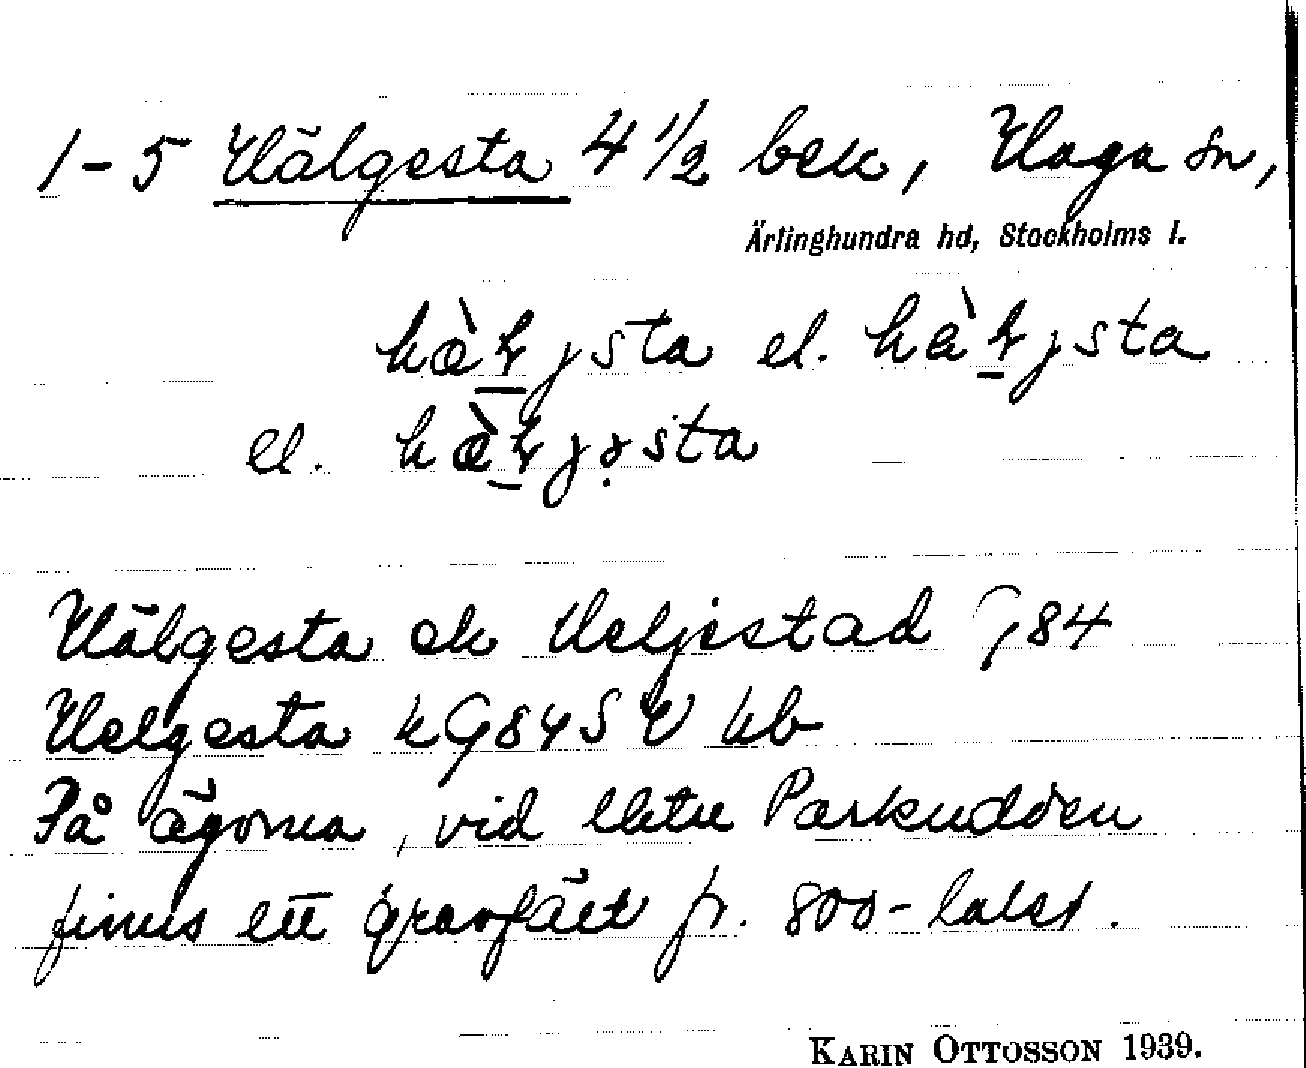 1-5 Hälgesta 4 1/2 bek, Haga sn,
Ärlinghundra hd, Stockholms l.
hæ̀ɫjsta el. hàɫjsta
el. hæ̀ɫjə̣sta
Hälgesta ek Heljestad G84
Helgesta kG84SV hb
På ägorna, vid
finns ett gravfält fr. 800-talet.
KARIN OTTOSSON 1939.